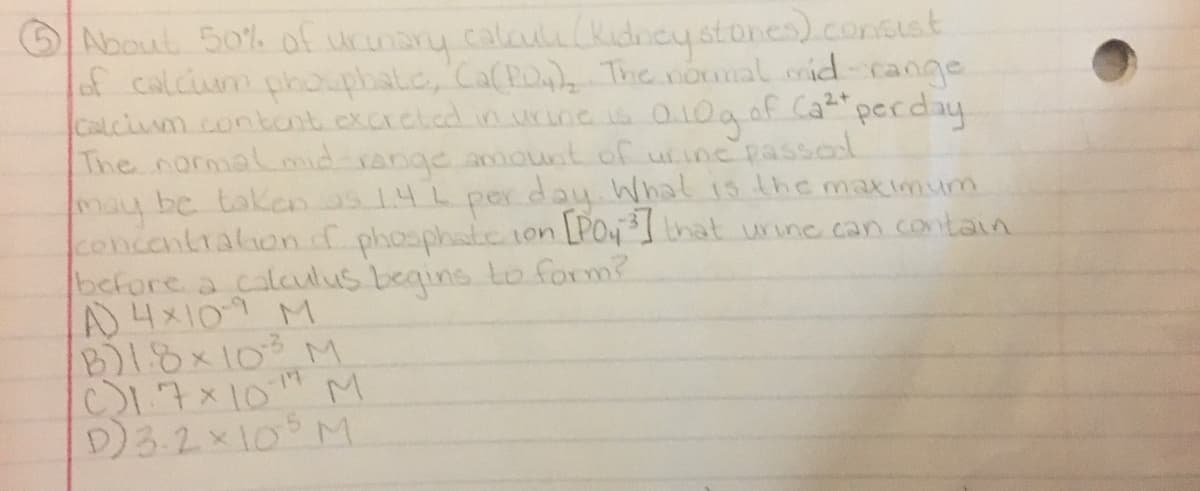 ⑤ About 50% of urinary calculi (kidney stones) consist
of calcium phosphate, Ca(PO₄)₂. The normal mid-range
calcium content excreted in urine is 0.10g of Ca²⁺ per day
The normal mid-range amount of urine passed
may be taken as 1.4 L per day. What is the maximum
concentration of phosphate ion [PO₄⁻³] that urine can contain
before a calculus begins to form?
A) 4×10⁻⁹ M
B) 1.8×10⁻³ M
C) 1.7×10⁻¹⁷ M
D) 3.2×10⁻⁵ M